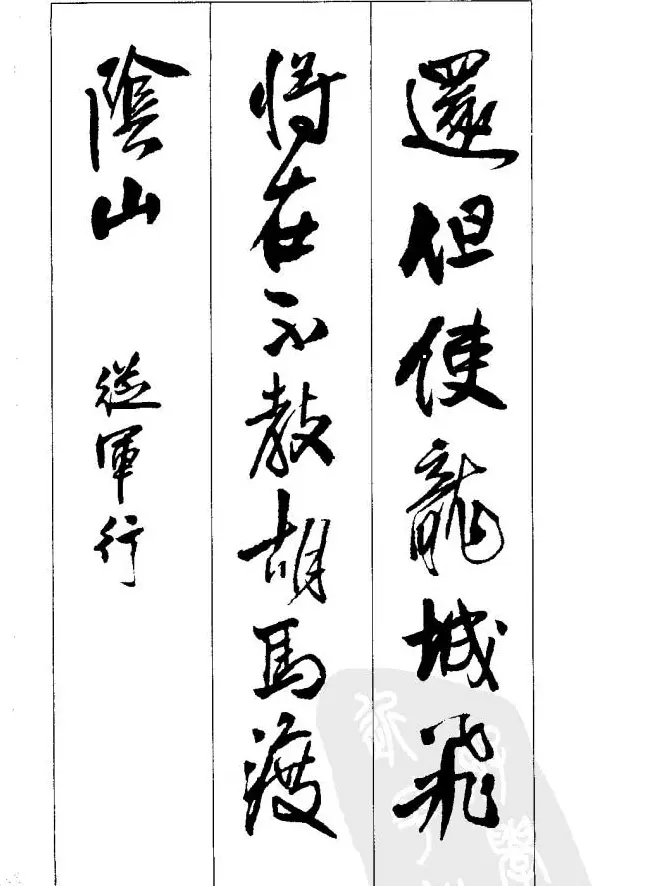 還但使龍城飛
將在不教胡馬渡
陰山
從軍行